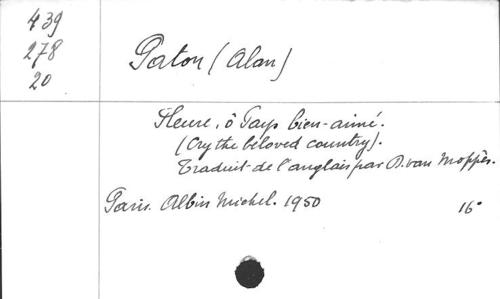 439
278
20
Paton (Alan)
Pleure, ô Pays bien-aimé.
(Cry the beloved country).
Traduit de l'anglais par D. van Moppès.
Paris. Albin Michel. 1950 16°